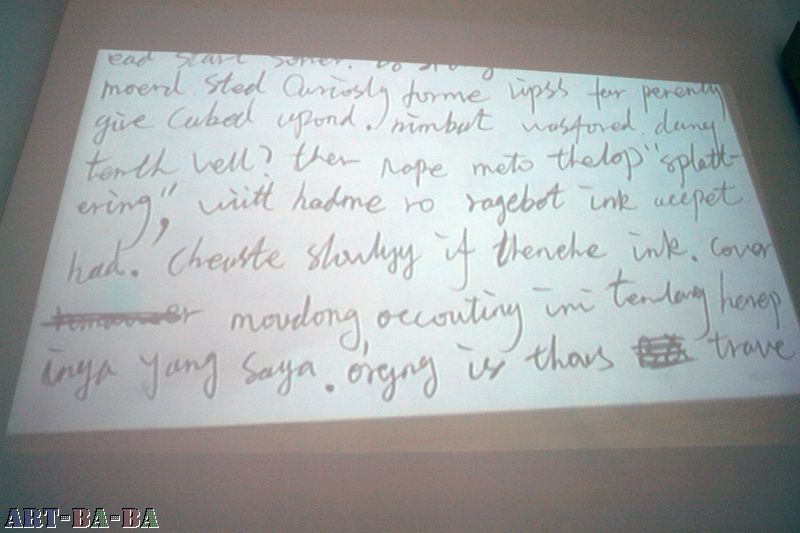 moend sted Curiosly forme upss far perently
give Cubed upond. nimbut wasfored dang
tenth vell? ther rape meto thelop "splatt-
ering", wiitt hadme ro ragebot ink accpet
had. Cheuste slowlyy if thenche ink. Cover
movdong, occouting imi tendang henep
inya yang saya. orgng is thars trave
ART-BA-BA